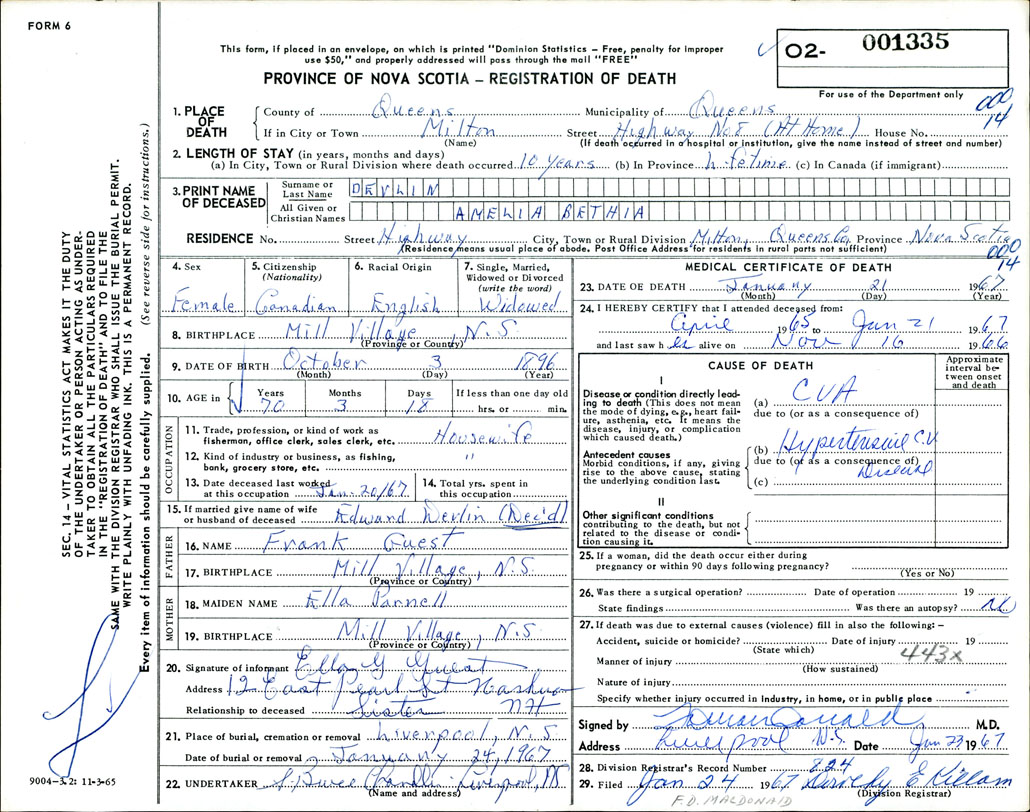 FORM 6
This form, if placed in an envelope, on which is printed "Dominion Statistics – Free, penalty for improper
use $50," and properly addressed will pass through the mail "FREE"
O2- 001335
PROVINCE OF NOVA SCOTIA – REGISTRATION OF DEATH
For use of the Department only
000
14
1. PLACE OF DEATH
County of Queens Municipality of Queens
If in City or Town Milton Street Highway No. 8 (At Home) House No.
(Name) (If death occurred in a hospital or institution, give the name instead of street and number)
2. LENGTH OF STAY (in years, months and days)
(a) In City, Town or Rural Division where death occurred 10 years (b) In Province lifetime (c) In Canada (if immigrant)
3. PRINT NAME OF DECEASED
Surname or Last Name DEVLIN
All Given or Christian Names AMELIA BETHIA
RESIDENCE No. Street Highway City, Town or Rural Division Milton, Queens Co. Province Nova Scotia
(Residence means usual place of abode. Post Office Address for residents in rural parts not sufficient)
000
14
4. Sex Female
5. Citizenship (Nationality) Canadian
6. Racial Origin English
7. Single, Married, Widowed or Divorced (write the word) Widowed
8. BIRTHPLACE Mill Village, N.S.
(Province or Country)
9. DATE OF BIRTH October 3 1896
(Month) (Day) (Year)
10. AGE in Years 70 Months 3 Days 18 If less than one day old hrs. or min.
OCCUPATION
11. Trade, profession, or kind of work as fisherman, office clerk, sales clerk, etc. Housewife
12. Kind of industry or business, as fishing, bank, grocery store, etc. "
13. Date deceased last worked at this occupation Jan. 20/67
14. Total yrs. spent in this occupation
15. If married give name of wife or husband of deceased Edward Devlin (Dec'd)
FATHER
16. NAME Frank Guest
17. BIRTHPLACE Mill Village, N.S.
(Province or Country)
MOTHER
18. MAIDEN NAME Ella Parnell
19. BIRTHPLACE Mill Village, N.S.
(Province or Country)
20. Signature of informant Ella G Guest
Address 12 East Pearl St Nashua
Relationship to deceased Sister NH
21. Place of burial, cremation or removal Liverpool, N.S.
Date of burial or removal January 24, 1967
22. UNDERTAKER Liverpool, NS
(Name and address)
MEDICAL CERTIFICATE OF DEATH
23. DATE OF DEATH January 21 1967
(Month) (Day) (Year)
24. I HEREBY CERTIFY that I attended deceased from:
April 1965 to Jan 21 1967
and last saw her alive on Nov 16 1966
CAUSE OF DEATH
Approximate interval between onset and death
I
Disease or condition directly leading to death (This does not mean the mode of dying, e.g., heart failure, asthenia, etc. It means the disease, injury, or complication which caused death.)
(a) CVA
due to (or as a consequence of)
Antecedent causes
Morbid conditions, if any, giving rise to the above cause, stating the underlying condition last.
(b) Hypertensive C.V.
due to (or as a consequence of)
Disease
(c)
II
Other significant conditions
contributing to the death, but not related to the disease or condition causing it.
25. If a woman, did the death occur either during
pregnancy or within 90 days following pregnancy?
(Yes or No)
26. Was there a surgical operation? Date of operation 19
State findings Was there an autopsy? No
27. If death was due to external causes (violence) fill in also the following: –
Accident, suicide or homicide? Date of injury 19
(State which)
443x
Manner of injury
(How sustained)
Nature of injury
Specify whether injury occurred in industry, in home, or in public place
Signed by M.D.
Address Liverpool N.S. Date Jan 23 1967
28. Division Registrar's Record Number 824
29. Filed Jan 24 1967 Dorothy E Killam
(Division Registrar)
F.D. MACDONALD
SEC. 14 – VITAL STATISTICS ACT MAKES IT THE DUTY
OF THE UNDERTAKER OR PERSON ACTING AS UNDER-
TAKER TO OBTAIN ALL THE PARTICULARS REQUIRED
IN THE "REGISTRATION OF DEATH" AND TO FILE THE
SAME WITH THE DIVISION REGISTRAR WHO SHALL ISSUE THE BURIAL PERMIT.
WRITE PLAINLY WITH UNFADING INK. THIS IS A PERMANENT RECORD.
Every item of information should be carefully supplied. (See reverse side for instructions.)
9004-3.2: 11-3-65